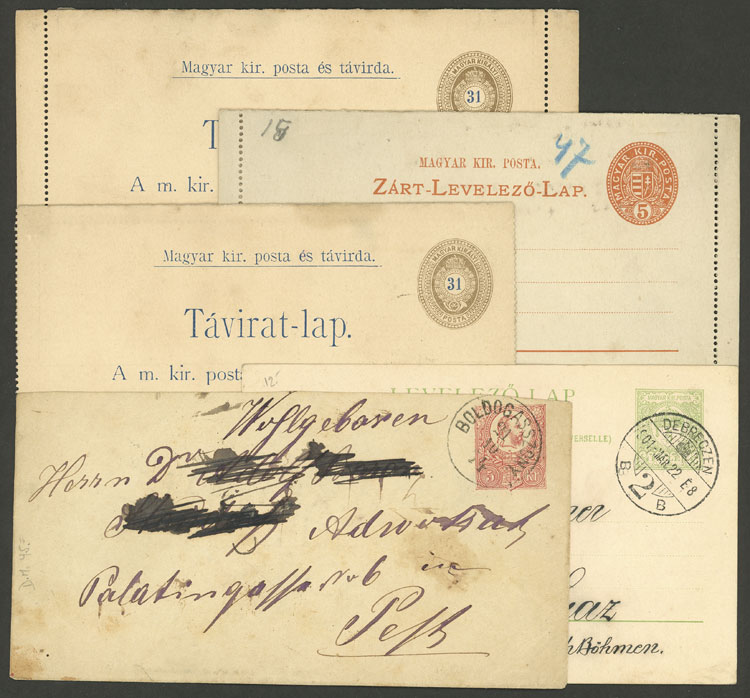 Magyar kir. posta és távirda.
MAGYAR KIRÁLYI
31
T
A m. kir.
18
47
MAGYAR KIR. POSTA.
ZÁRT-LEVELEZŐ-LAP.
MAGYAR KIR. POSTA
5
Magyar kir. posta és távirda.
MAGYAR KIRÁLYI
31
POSTA
Távirat-lap.
A m. kir. post
12.-
LEVELEZŐ-LAP
VERSELLE)
DEBRECZEN
901 MÁR. 22 E 8
B. 2 B
ner
az
Böhmen.
BOLDOGASSZONY
5 Kr
Wohlgeboren
Herrn Dr
Advokat
Palatingasse in
Pesth
DM. 45.-